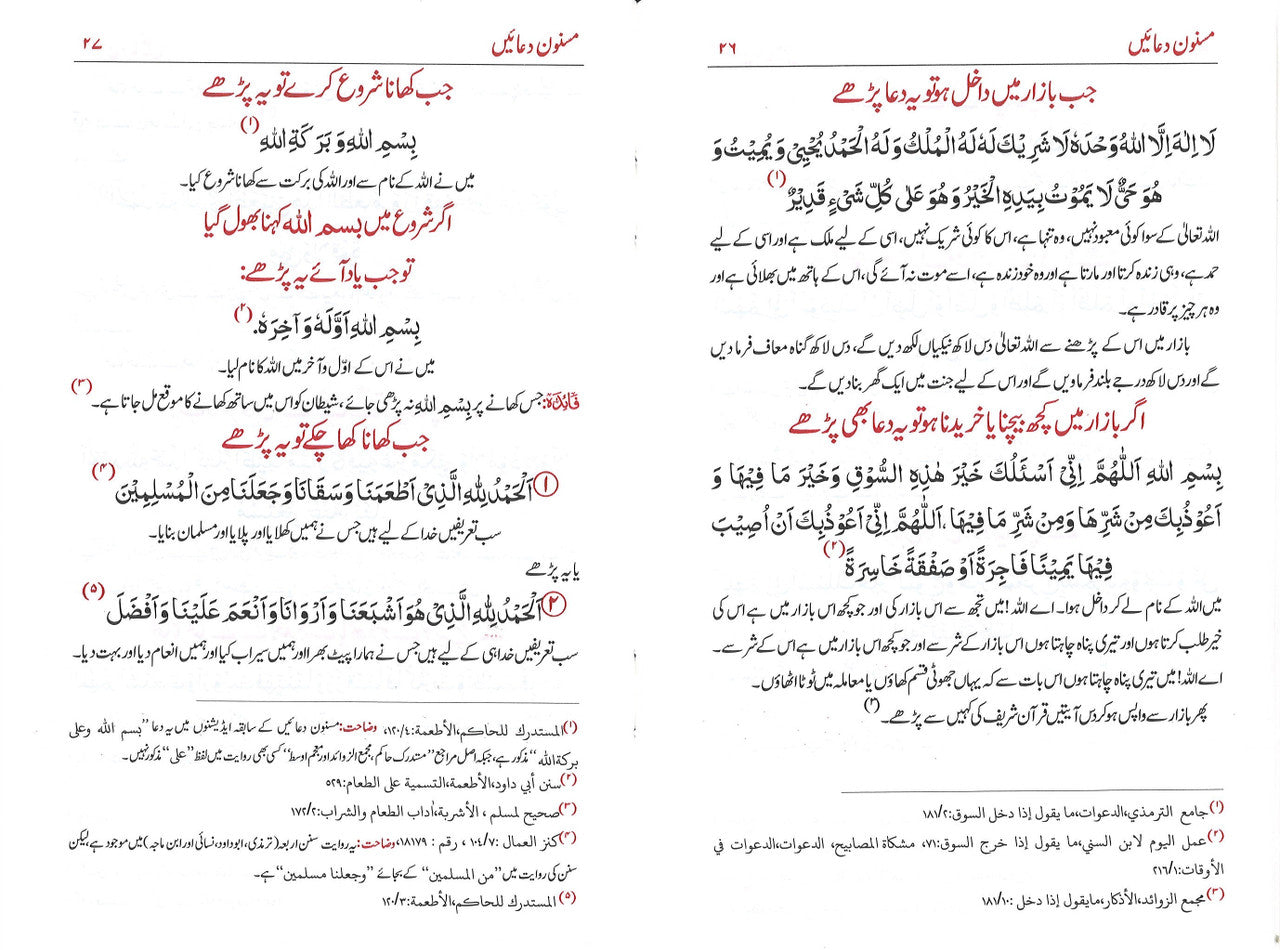 مسنون دعائیں ۲۶
جب بازار میں داخل ہو تو یہ دعا پڑھے
لَا اِلٰهَ اِلَّا اللهُ وَحْدَهٗ لَا شَرِيْكَ لَهٗ لَهُ الْمُلْكُ وَلَهُ الْحَمْدُ يُحْيِيْ وَيُمِيْتُ وَ
هُوَ حَيٌّ لَا يَمُوْتُ بِيَدِهِ الْخَيْرُ وَهُوَ عَلٰى كُلِّ شَيْءٍ قَدِيْرٌ (۱)
اللہ تعالیٰ کے سوا کوئی معبود نہیں، وہ تنہا ہے، اس کا کوئی شریک نہیں، اسی کے لیے ملک ہے اور اسی کے لیے
حمد ہے، وہی زندہ کرتا اور مارتا ہے اور وہ خود زندہ ہے، اسے موت نہ آئے گی، اس کے ہاتھ میں بھلائی ہے اور
وہ ہر چیز پر قادر ہے۔
بازار میں اس کے پڑھنے سے اللہ تعالیٰ دس لاکھ نیکیاں لکھ دیں گے، دس لاکھ گناہ معاف فرما دیں
گے اور دس لاکھ درجے بلند فرماویں گے اور اس کے لیے جنت میں ایک گھر بنا دیں گے۔
اگر بازار میں کچھ بیچنا یا خریدنا ہو تو یہ دعا بھی پڑھے
بِسْمِ اللهِ اَللّٰهُمَّ اِنِّيْ اَسْئَلُكَ خَيْرَ هٰذِهِ السُّوْقِ وَخَيْرَ مَا فِيْهَا وَ
اَعُوْذُبِكَ مِنْ شَرِّهَا وَمِنْ شَرِّ مَا فِيْهَا، اَللّٰهُمَّ اِنِّيْ اَعُوْذُبِكَ اَنْ اُصِيْبَ
فِيْهَا يَمِيْنًا فَاجِرَةً اَوْ صَفْقَةً خَاسِرَةً (۲)
میں اللہ کے نام لے کر داخل ہوا۔ اے اللہ! میں تجھ سے اس بازار کی اور جو کچھ اس بازار میں ہے اس کی
خیر طلب کرتا ہوں اور تیری پناہ چاہتا ہوں اس بازار کے شر سے اور جو کچھ اس بازار میں ہے اس کے شر سے۔
اے اللہ! میں تیری پناہ چاہتا ہوں اس بات سے کہ یہاں جھوٹی قسم کھاؤں یا معاملہ میں ٹوٹا اٹھاؤں۔
پھر بازار سے واپس ہو کر دس آیتیں قرآن شریف کی کہیں سے پڑھے۔ (۳)
(۱) جامع الترمذي،الدعوات،ما يقول إذا دخل السوق:۱۸۱/۲
(۲) عمل اليوم لابن السني،ما يقول إذا خرج السوق:۷۱، مشكاة المصابيح، الدعوات،الدعوات في
الأوقات:۲۱۶/۱
(۳) مجمع الزوائد،الأذكار،مايقول إذا دخل :۱۸۱/۱۰
مسنون دعائیں ۲۷
جب کھانا شروع کرے تو یہ پڑھے
بِسْمِ اللهِ وَبَرَكَةِ اللهِ (۱)
میں نے اللہ کے نام سے اور اللہ کی برکت سے کھانا شروع کیا۔
اگر شروع میں بسم اللہ کہنا بھول گیا
تو جب یاد آئے یہ پڑھے:
بِسْمِ اللهِ اَوَّلَهٗ وَاٰخِرَهٗ. (۲)
میں نے اس کے اوّل و آخر میں اللہ کا نام لیا۔
فائدہ: جس کھانے پر بِسْمِ اللهِ نہ پڑھی جائے، شیطان کو اس میں ساتھ کھانے کا موقع مل جاتا ہے۔ (۳)
جب کھانا کھا چکے تو یہ پڑھے
① اَلْحَمْدُ لِلّٰهِ الَّذِيْ اَطْعَمَنَا وَسَقَانَا وَجَعَلَنَا مِنَ الْمُسْلِمِيْنَ (۴)
سب تعریفیں خدا کے لیے ہیں جس نے ہمیں کھلایا اور پلایا اور مسلمان بنایا۔
یا یہ پڑھے
② اَلْحَمْدُ لِلّٰهِ الَّذِيْ هُوَ اَشْبَعَنَا وَاَرْوَانَا وَاَنْعَمَ عَلَيْنَا وَاَفْضَلَ (۵)
سب تعریفیں خدا ہی کے لیے ہیں جس نے ہمارا پیٹ بھرا اور ہمیں سیراب کیا اور ہمیں انعام دیا اور بہت دیا۔
(۱) المستدرك للحاكم،الأطعمة:۱۲۰/۴، وضاحت: مسنون دعائیں کے سابقہ ایڈیشنوں میں یہ دعا ”بسم الله وعلى
بركة الله“ مذکور ہے، جبکہ اصل مراجع ”مستدرک حاکم، مجمع الزوائد اور معجم اوسط“ کسی بھی روایت میں لفظ ”علی“ مذکور نہیں۔
(۲) سنن أبي داود،الأطعمة،التسمية على الطعام:۵۲۹
(۳) صحيح لمسلم ، الأشربة،آداب الطعام والشراب:۱۷۲/۲
(۴) كنز العمال :۱۰۴/۷ ، رقم : ۱۸۱۷۹، وضاحت: یہ روایت سنن اربعہ (ترمذی، ابوداود، نسائی اور ابن ماجہ) میں موجود ہے، لیکن
سنن کی روایت میں ”من المسلمين“ کے بجائے ”وجعلنا مسلمين“ ہے۔
(۵) المستدرك للحاكم،الأطعمة:۱۲۰/۳